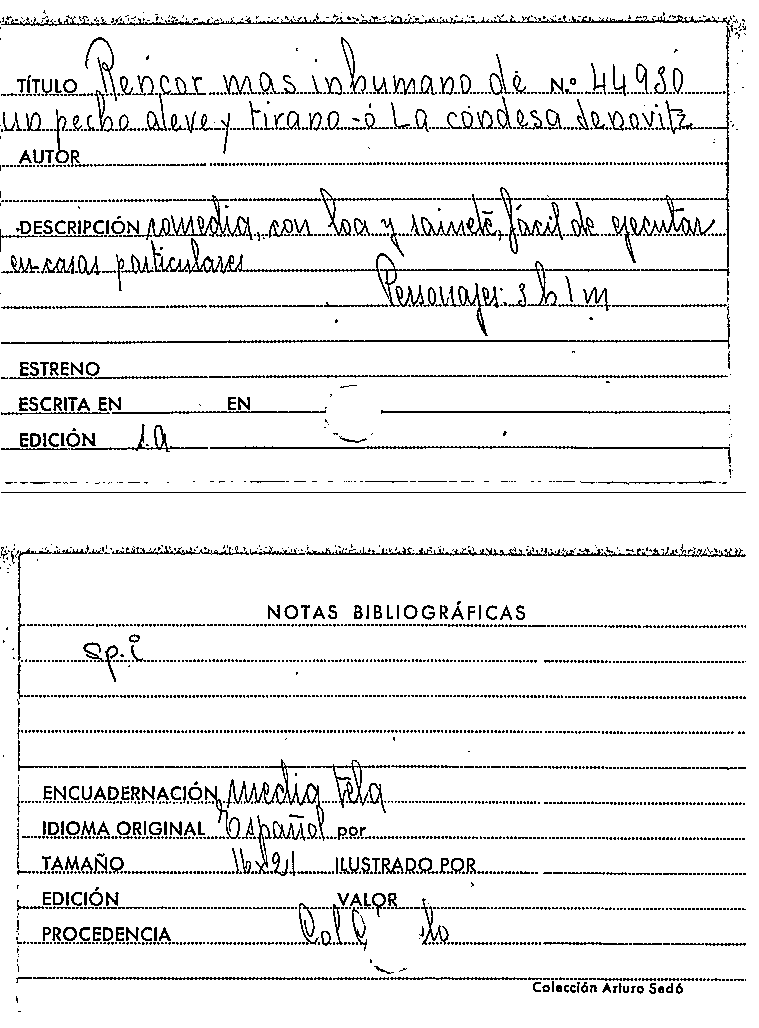 TÍTULO Rencor mas inhumano de N.º 44980
un pecho aleve y tirano - ó La condesa Jenovitz
AUTOR
DESCRIPCIÓN comedia, con loa y sainete, fácil de ejecutar
en casas particulares
Personajes: 3 h 1 m
ESTRENO
ESCRITA EN EN
EDICIÓN 1.a
NOTAS BIBLIOGRÁFICAS
sp.i
ENCUADERNACIÓN media tela
IDIOMA ORIGINAL Español por
TAMAÑO 16x21 ILUSTRADO POR
EDICIÓN VALOR
PROCEDENCIA Col
Colección Arturo Sedó